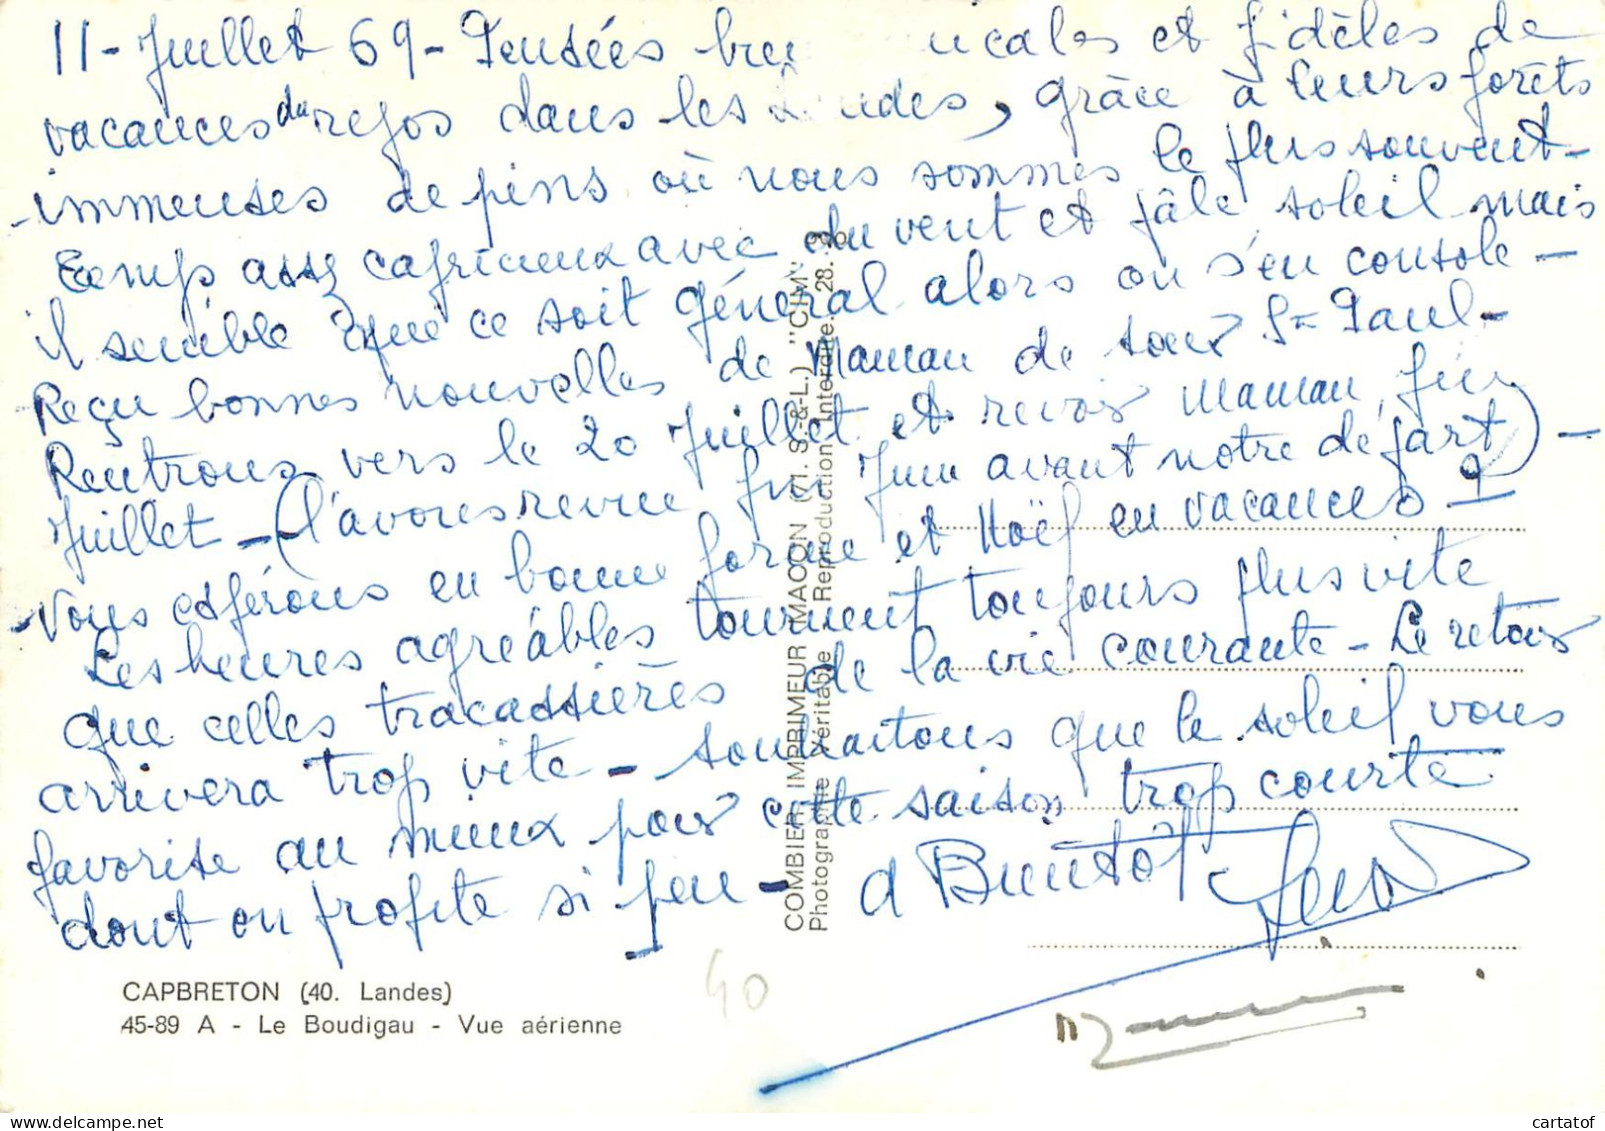 11 - Juillet 69 - Pensées icales et fidèles de
vacances du repos dans les Landes, grâce à leurs forêts
immenses de pins où nous sommes le plus souvent -
Temps assez capricieux avec du vent et pâle soleil mais
il semble que ce soit général alors on s'en console -
Reçu bonnes nouvelles de Maman de tour St Paul -
Rentrons vers le 20 Juillet et revoir Maman, fin
Juillet - (l'avons revue fin Juin avant notre départ) -
Vous espérons en bonne forme et Noël en vacances ?
Les heures agréables tournent toujours plus vite
que celles tracassières de la vie courante - Le retour
arrivera trop vite - souhaitons que le soleil vous
favorise au mieux pour cette saison trop courte
dont on profite si peu - à Bientôt
COMBIER IMPRIMEUR MACON (71. S.-&-L.) "CIM"
Photographie Véritable Reproduction Interdite.
40
CAPBRETON (40. Landes)
45-89 A - Le Boudigau - Vue aérienne
cartatof